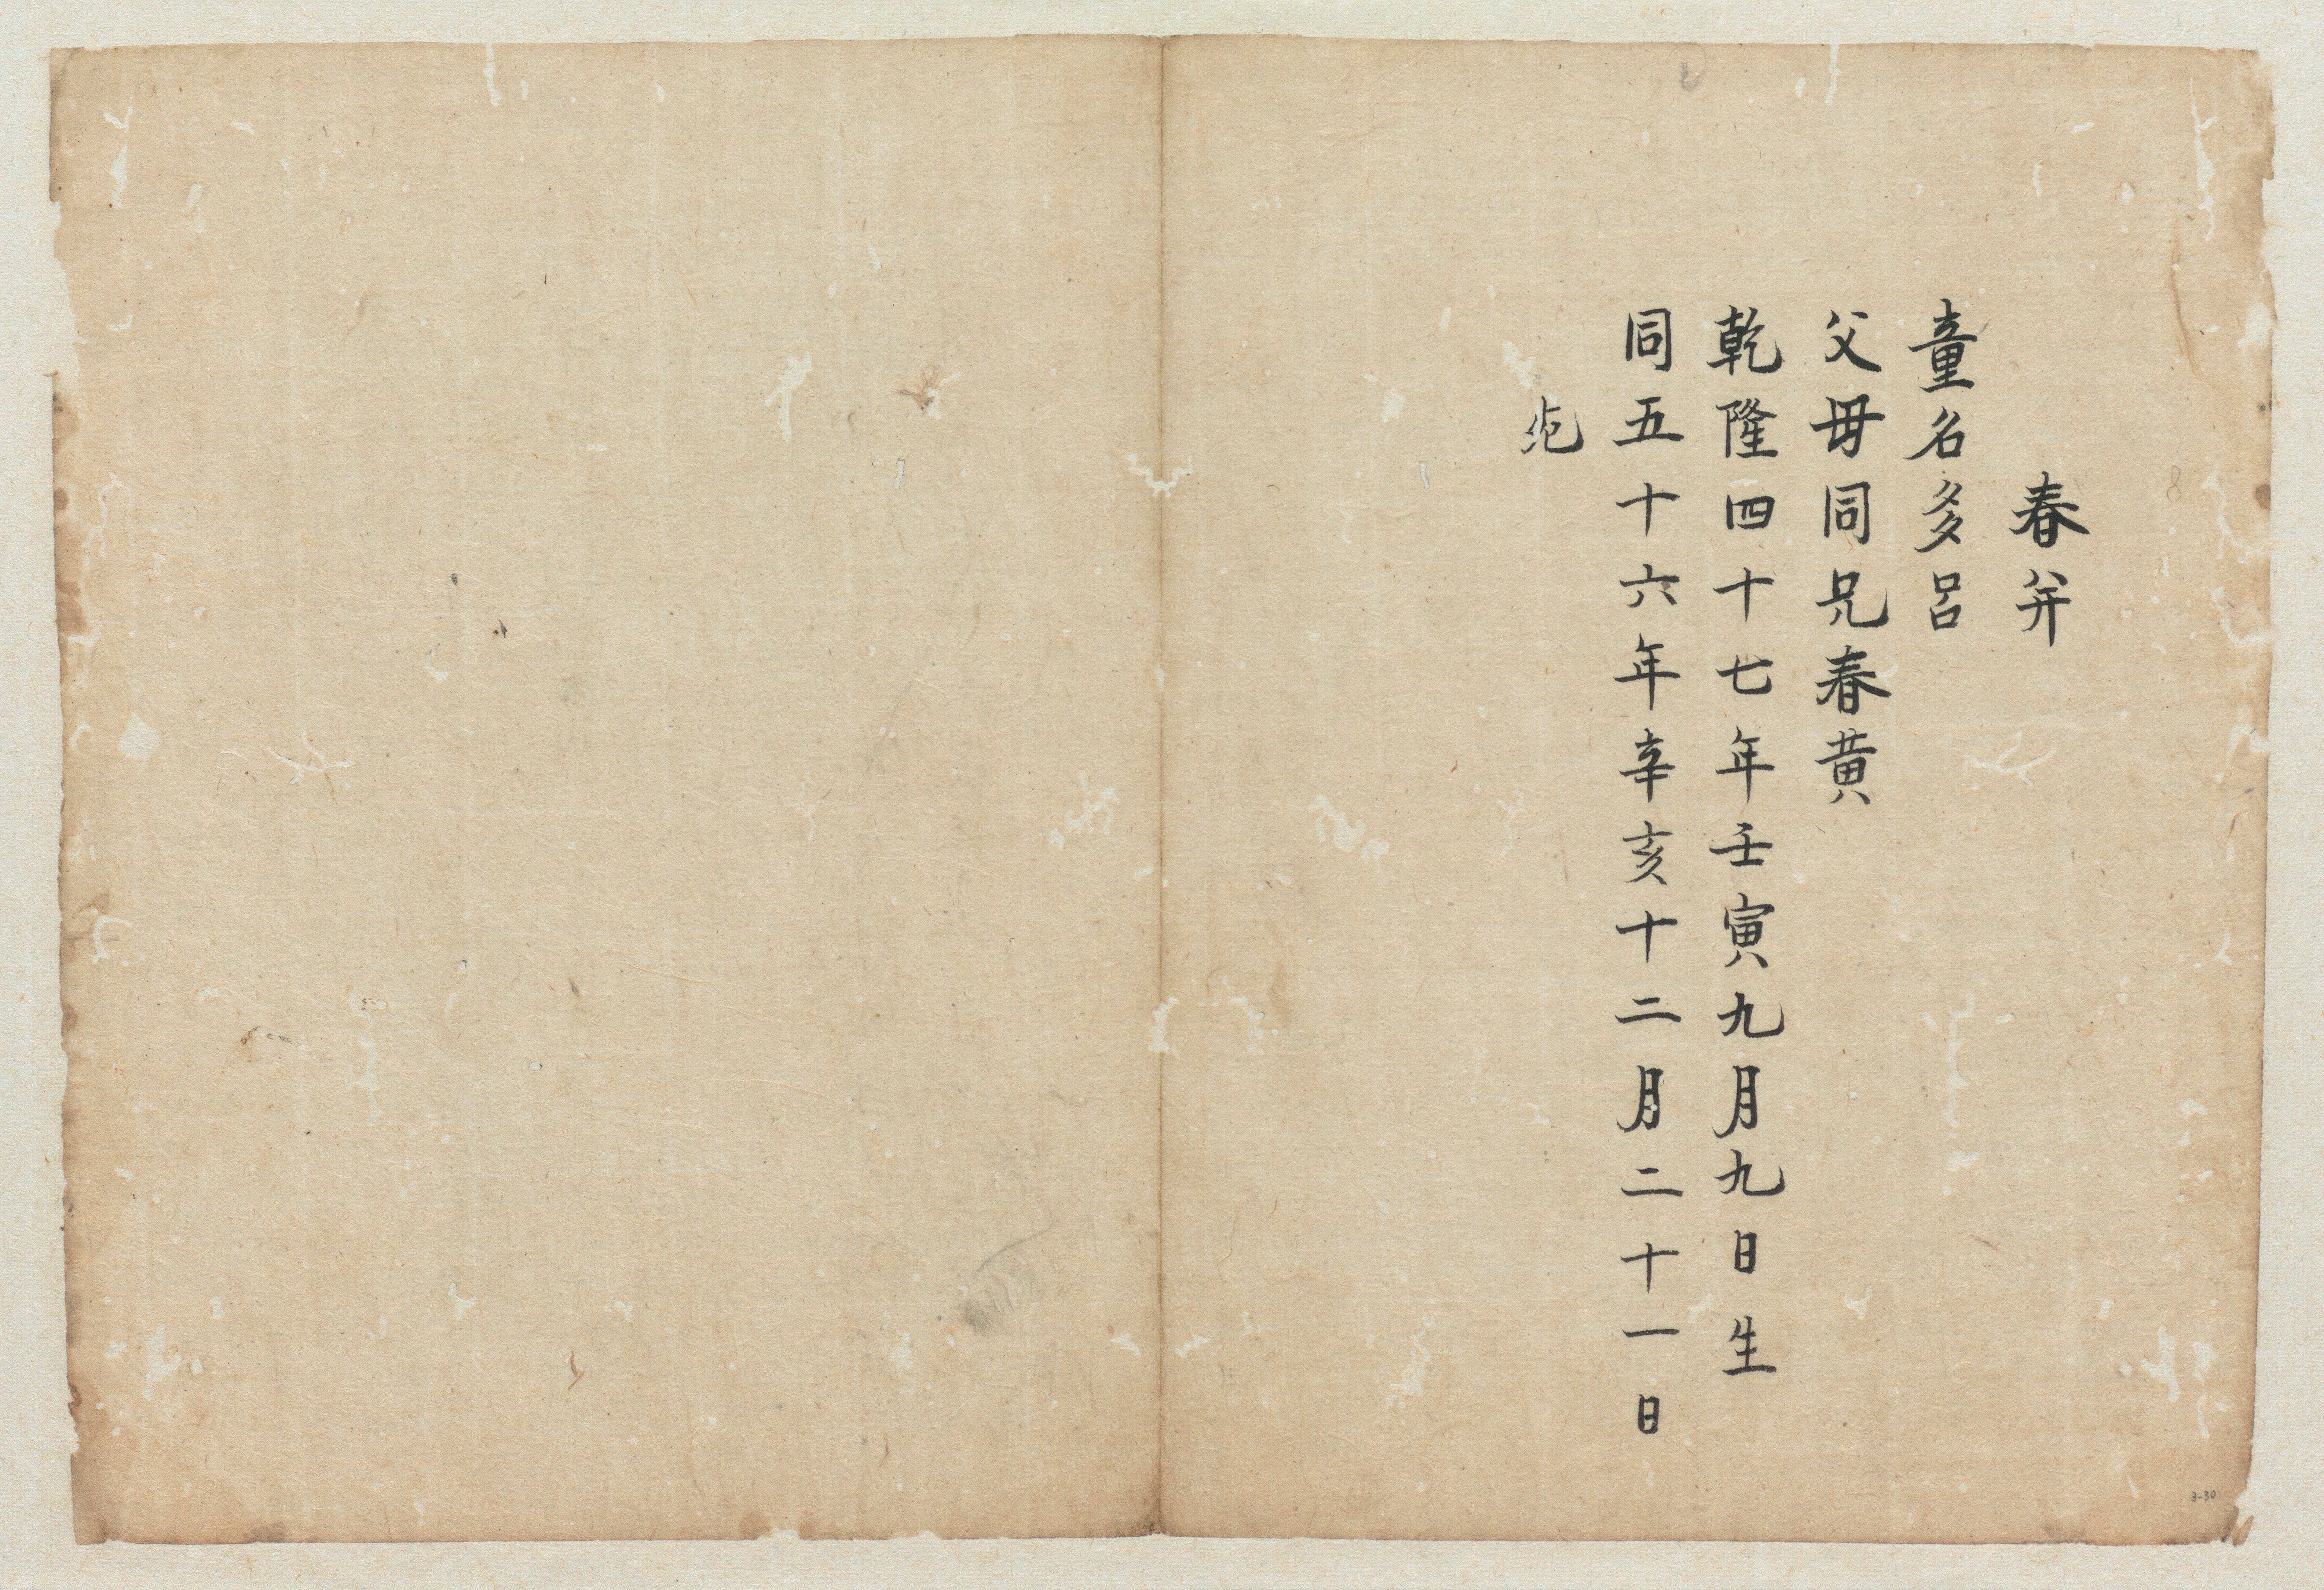 春并
童名多呂
父母同兄春黄
乾隆四十七年壬寅九月九日生
同五十六年辛亥十二月二十一日
3-30